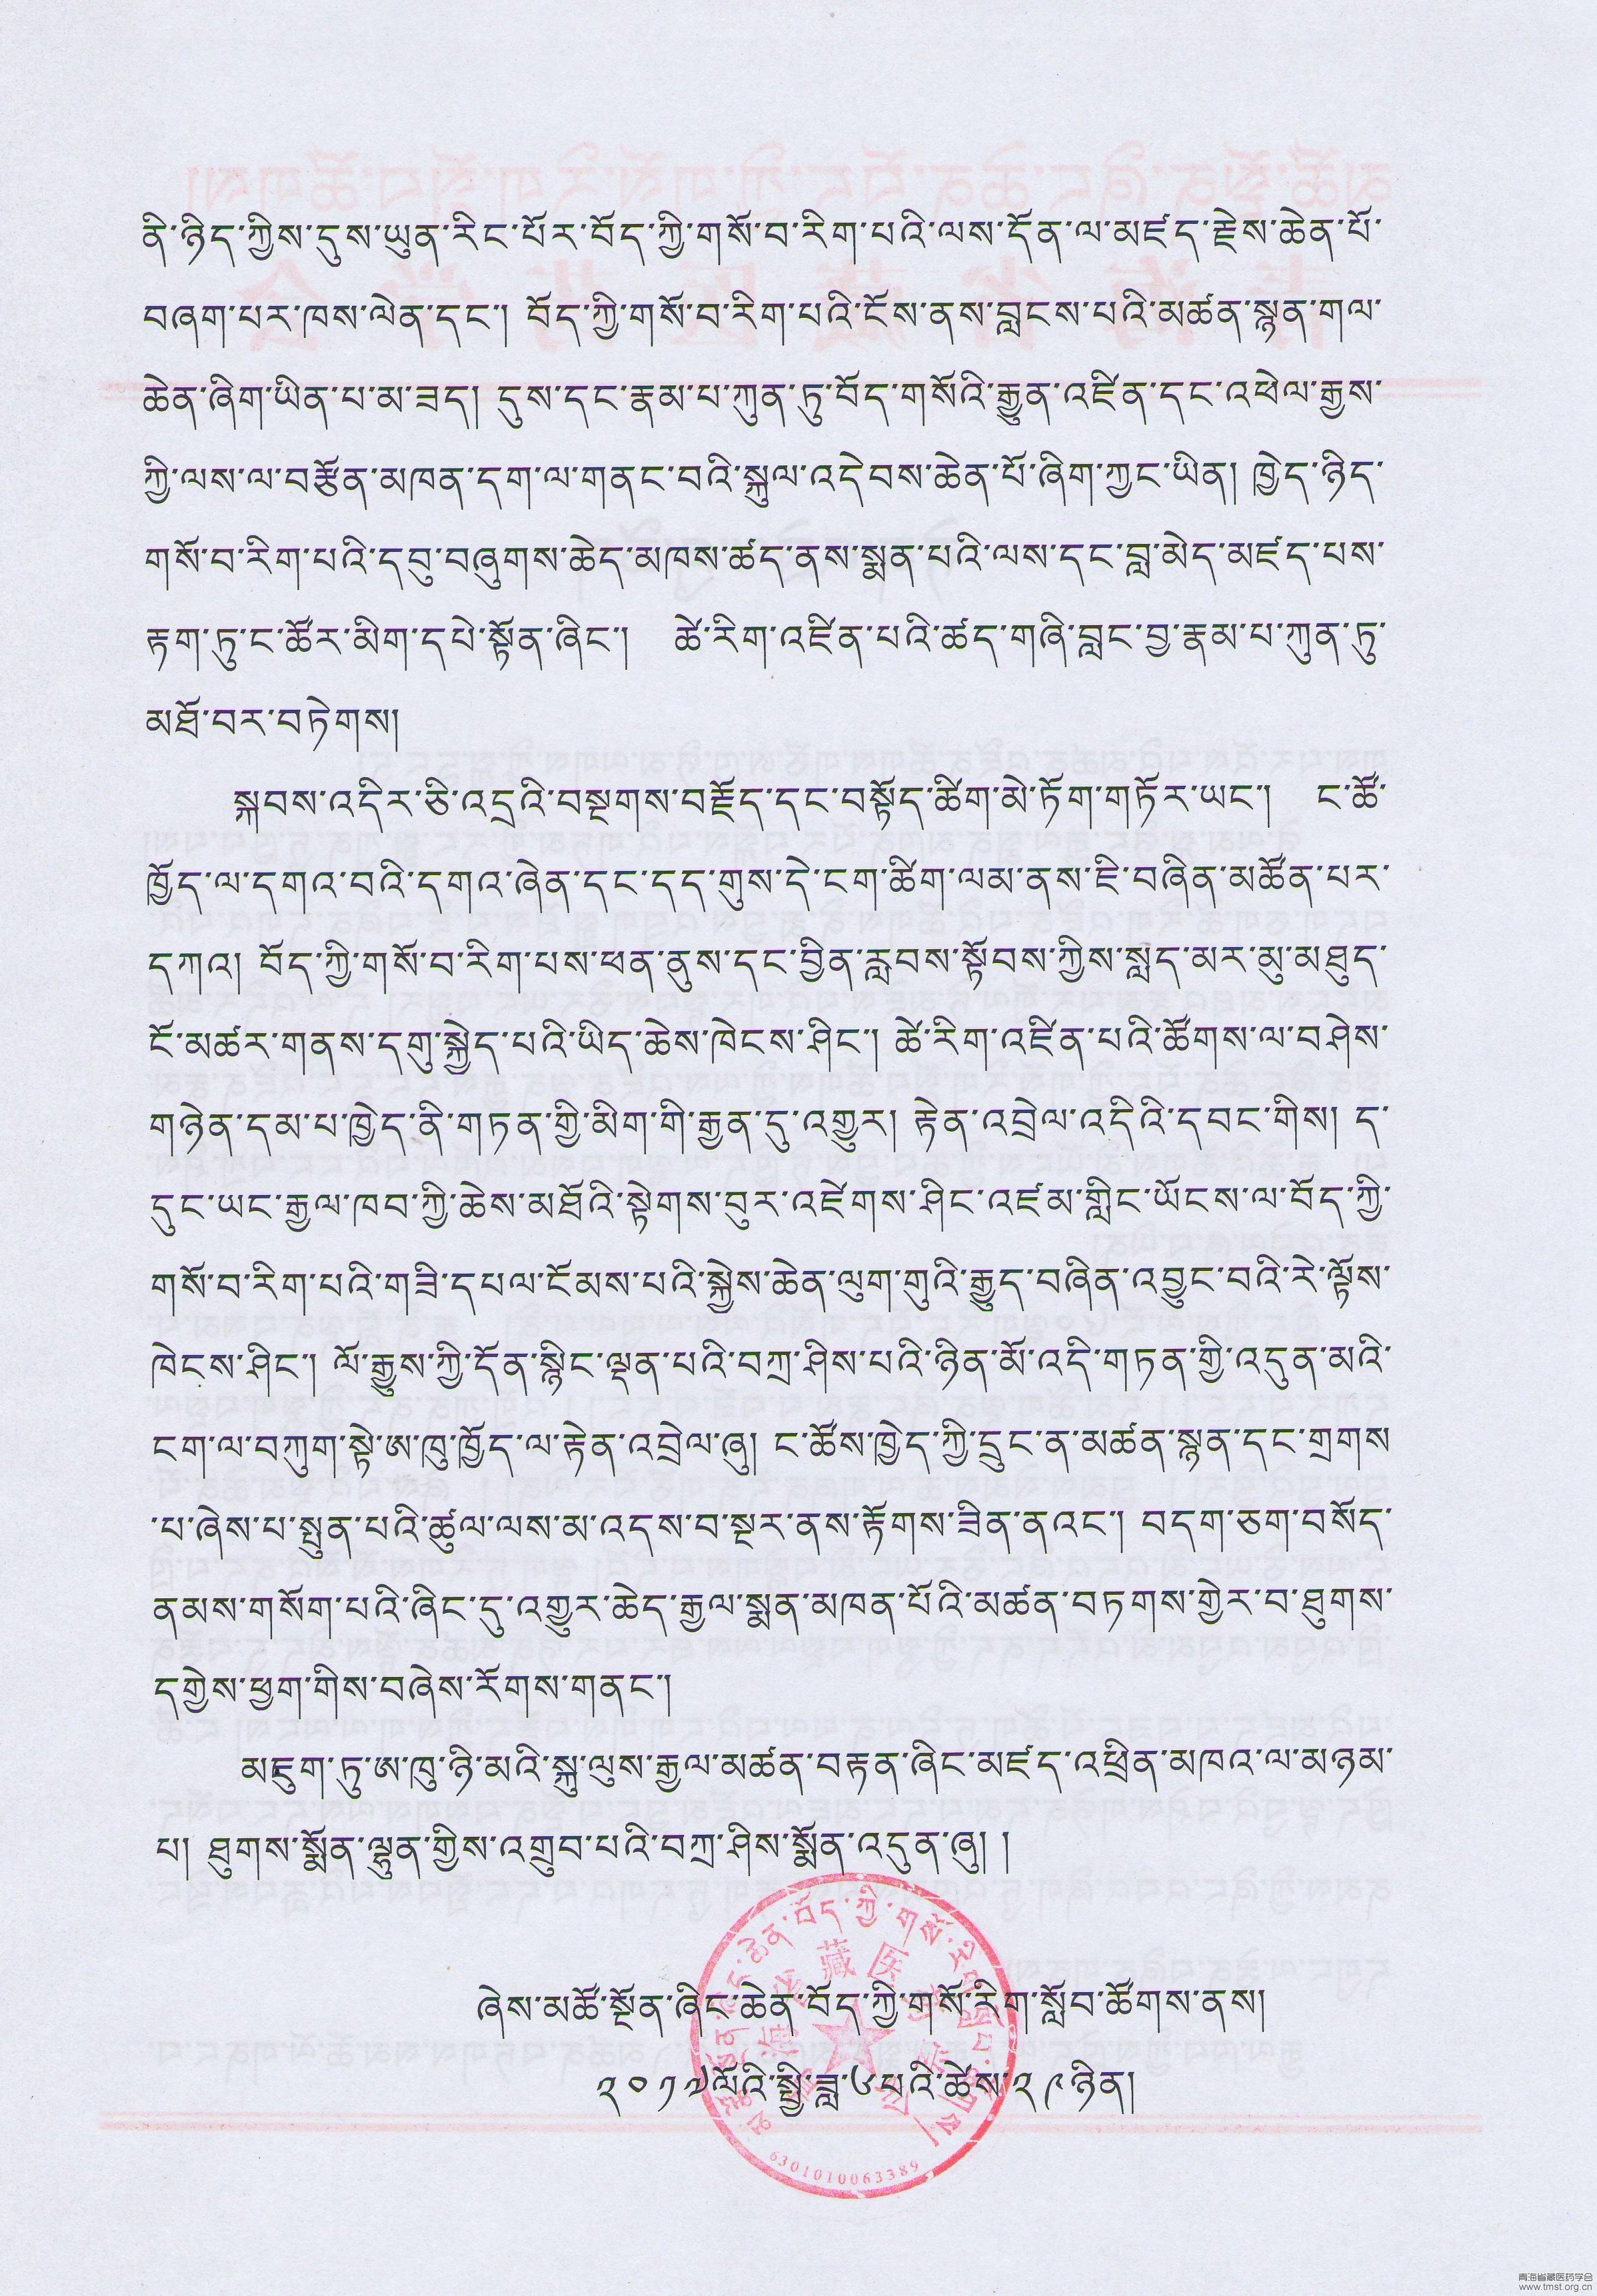 ནི་ཉིད་ཀྱིས་དུས་ཡུན་རིང་པོར་བོད་ཀྱི་གསོ་བ་རིག་པའི་ལས་དོན་ལ་མཛད་རྗེས་ཆེན་པོ་
བཞག་པར་ཁས་ལེན་དང་། བོད་ཀྱི་གསོ་བ་རིག་པའི་ངོས་ནས་བླངས་པའི་མཚན་སྙན་གལ་
ཆེན་ཞིག་ཡིན་པ་མ་ཟད། དུས་དང་རྣམ་པ་ཀུན་ཏུ་བོད་གསོའི་རྒྱུན་འཛིན་དང་འཕེལ་རྒྱས་
ཀྱི་ལས་ལ་བརྩོན་མཁན་དག་ལ་གནང་བའི་སྐུལ་འདེབས་ཆེན་པོ་ཞིག་ཀྱང་ཡིན། ཁྱེད་ཉིད་
གསོ་བ་རིག་པའི་དབུ་བཞུགས་ཆེད་མཁས་ཚད་ནས་སྨན་པའི་ལས་དང་བླ་མེད་མཛད་པས་
རྟག་ཏུ་ང་ཚོར་མིག་དཔེ་སྟོན་ཞིང་། ཚེ་རིག་འཛིན་པའི་ཚད་གཞི་བླང་བྱ་རྣམ་པ་ཀུན་ཏུ་
མཐོ་བར་བཏེགས།
སྐབས་འདིར་ཅི་འདྲའི་བསྔགས་བརྗོད་དང་བསྟོད་ཚིག་མེ་ཏོག་གཏོར་ཡང་། ང་ཚོ་
ཁྱོད་ལ་དགའ་བའི་དགའ་ཞེན་དང་དད་གུས་དེ་ངག་ཚིག་ལམ་ནས་ཇི་བཞིན་མཚོན་པར་
དཀའ། བོད་ཀྱི་གསོ་བ་རིག་པས་ཕན་ནུས་དང་བྱིན་རླབས་སྟོབས་ཀྱིས་སླད་མར་མུ་མཐུད་
ངོ་མཚར་གནས་དགུ་སྐྱེད་པའི་ཡིད་ཆེས་ཁེངས་ཤིང་། ཚེ་རིག་འཛིན་པའི་ཚོགས་ལ་བཤེས་
གཉེན་དམ་པ་ཁྱེད་ནི་གཏན་གྱི་མིག་གི་རྒྱན་དུ་འགྱུར། རྟེན་འབྲེལ་འདིའི་དབང་གིས། ད་
དུང་ཡང་རྒྱལ་ཁབ་ཀྱི་ཆེས་མཐོའི་སྟེགས་བུར་འཛེགས་ཤིང་འཛམ་གླིང་ཡོངས་ལ་བོད་ཀྱི་
གསོ་བ་རིག་པའི་གཟི་དཔལ་ངོམས་པའི་སྐྱེས་ཆེན་ལུག་གུའི་རྒྱུད་བཞིན་འབྱུང་བའི་རེ་ལྟོས་
ཁེངས་ཤིང་། ལོ་རྒྱུས་ཀྱི་དོན་སྙིང་ལྡན་པའི་བཀྲ་ཤིས་པའི་ཉིན་མོ་འདི་གཏན་གྱི་འདུན་མའི་
ངག་ལ་བཀུག་སྟེ་ཨ་ཁུ་ཁྱོད་ལ་རྟེན་འབྲེལ་ཞུ། ང་ཚོས་ཁྱེད་ཀྱི་དྲུང་ན་མཚན་སྙན་དང་གྲགས
་པ་ཞེས་པ་སྤྲུན་པའི་ཚུལ་ལས་མ་འདས་བ་སྔར་ནས་རྟོགས་ཟིན་ནའང་། བདག་ཅག་བསོད་
ནམས་གསོག་པའི་ཞིང་དུ་འགྱུར་ཆེད་རྒྱལ་སྨན་མཁན་པོའི་མཚན་བཏགས་གྱེར་བ་ཐུགས་
དགྱེས་ཕྱག་གིས་བཞེས་རོགས་གནང་།
མཇུག་ཏུ་ཨ་ཁུ་ཉི་མའི་སྐུ་ལུས་རྒྱལ་མཚན་བརྟན་ཞིང་མཛད་འཕྲིན་མཁའ་ལ་མཉམ་
པ། ཐུགས་སྨོན་ལྷུན་གྱིས་འགྲུབ་པའི་བཀྲ་ཤིས་སྨོན་འདུན་ཞུ། །
ཞེས་མཚོ་སྔོན་ཞིང་ཆེན་བོད་ཀྱི་གསོ་རིག་སློབ་ཚོགས་ནས།
༢༠༡༧ལོའི་སྤྱི་ཟླ་༦པའི་ཚེས་༢༩ཉིན།
6301010063389
青海省藏医药学会
www.tmst.org.cn